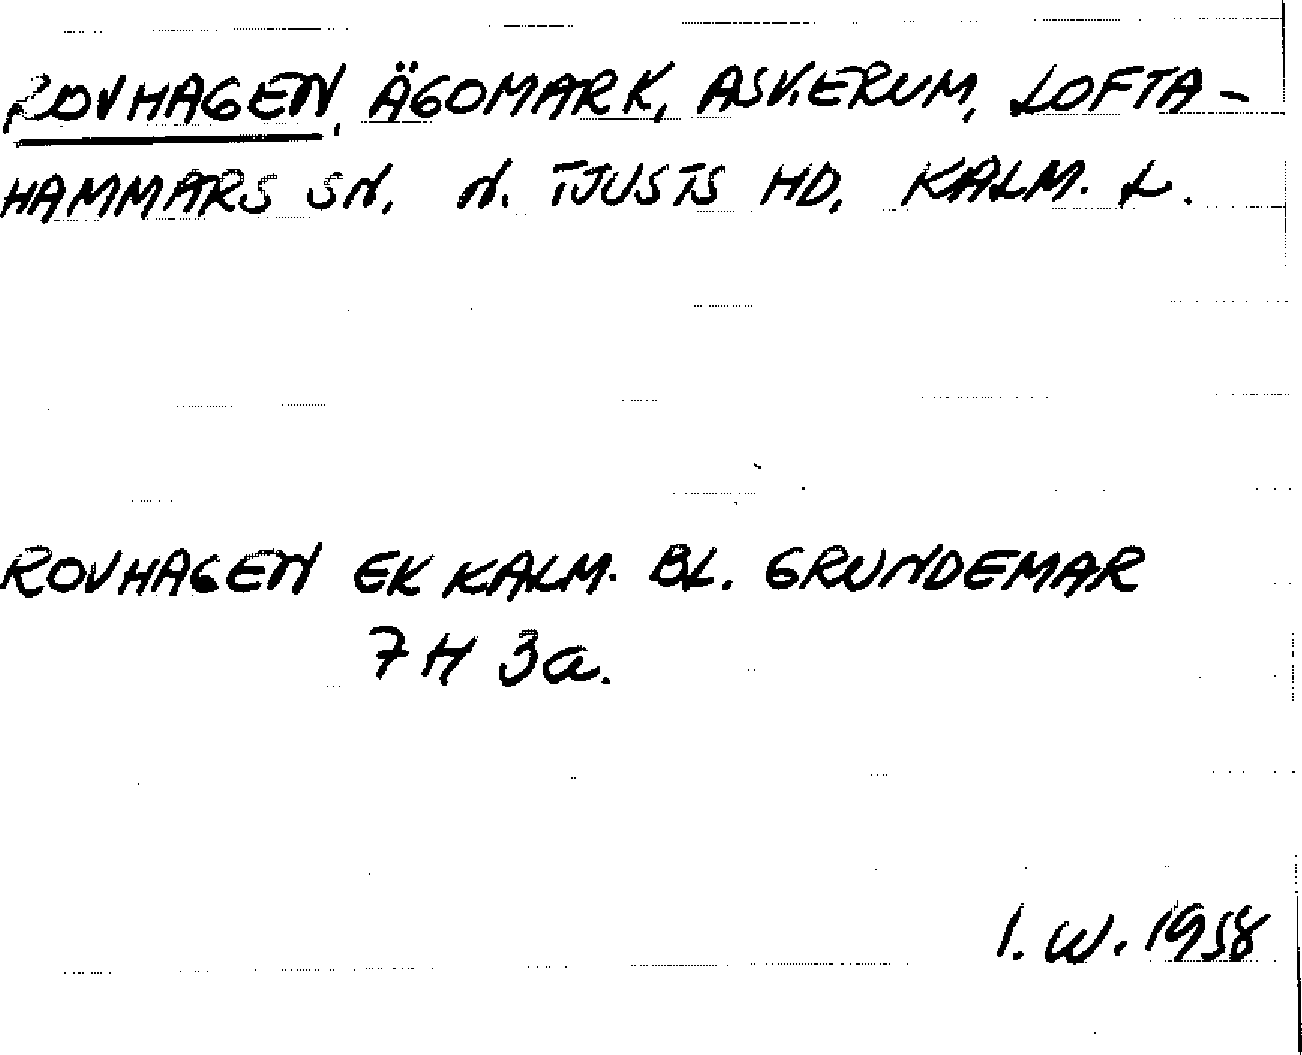 ROVHAGEN, ÄGOMARK, ASKERUM, LOFTA-
HAMMARS SN, N. TJUSTS HD, KALM. L.
ROVHAGEN EK KALM. BL. GRUNDEMAR
7H 3a.
I. W. 1958